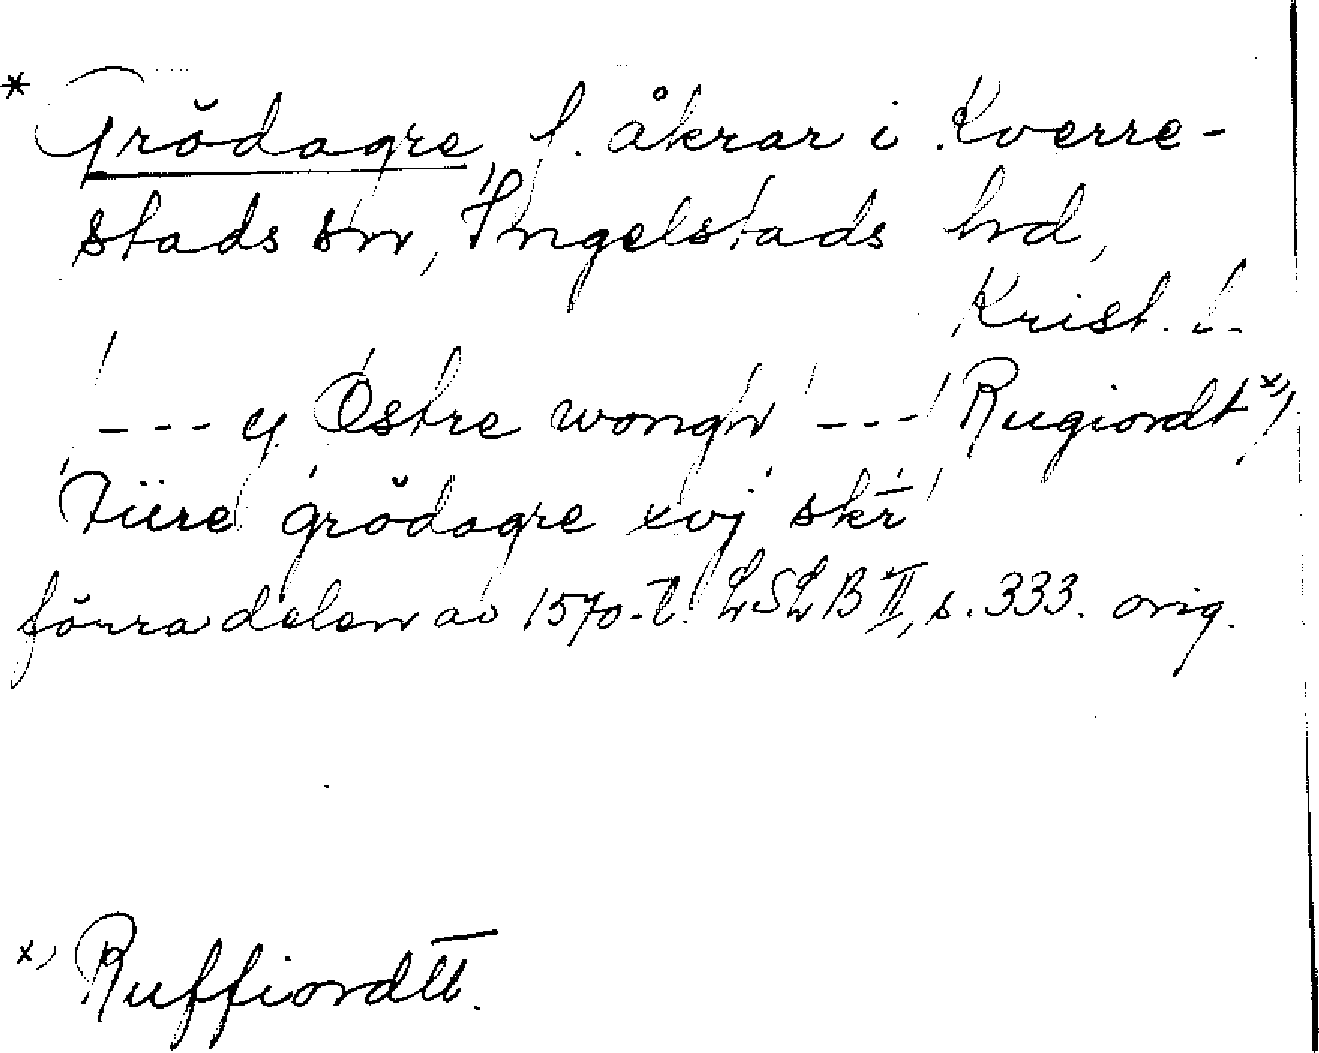 * Grödagre, f. åkrar i Kverre-
stads sn, Ingelstads hd,
Krist. l.
--- y Östre wongh --- Rugiordt x)
Fiire grödagre xvj skr
förra delen av 1570-t. LSLB II, s. 333. orig.
x) Ruffiordtt.